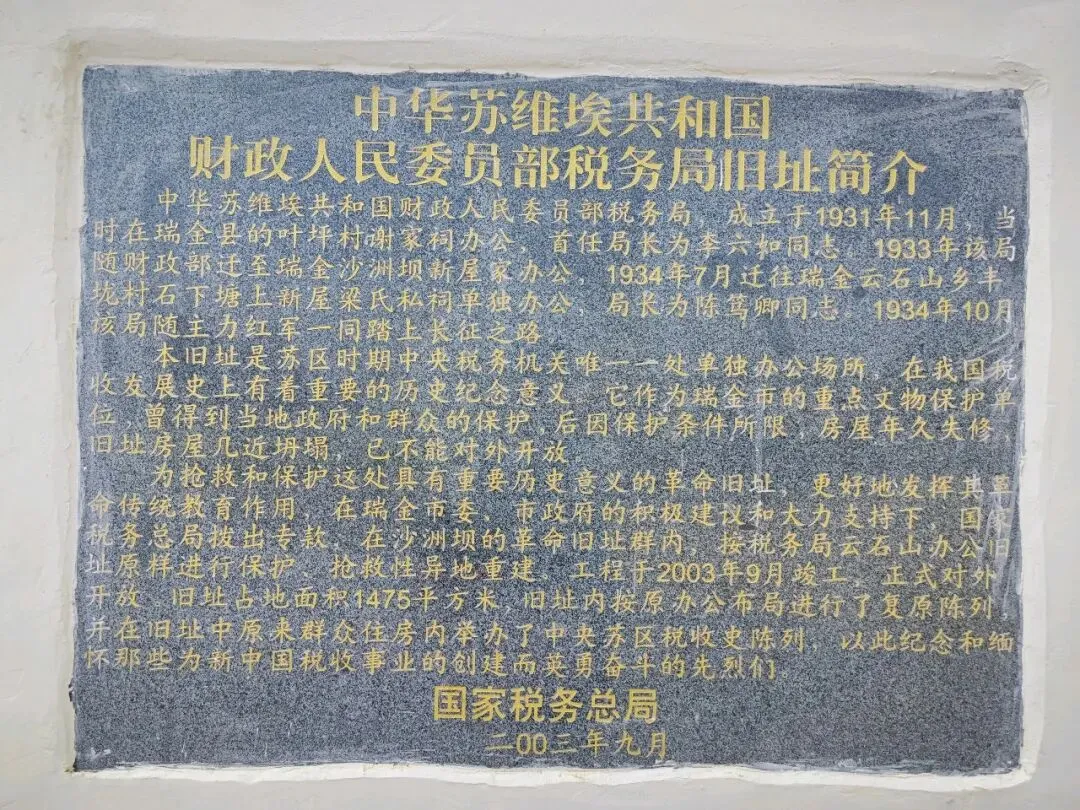 中华苏维埃共和国
财政人民委员部税务局旧址简介
中华苏维埃共和国财政人民委员部税务局，成立于1931年11月，当
时在瑞金县的叶坪村谢家祠办公，首任局长为李六如同志。1933年该局
随财政部迁至瑞金沙洲坝新屋家办公，1934年7月迁往瑞金云石山乡丰
垅村石下塘上新屋梁氏私祠单独办公，局长为陈笃卿同志。1934年10月
该局随主力红军一同踏上长征之路
本旧址是苏区时期中央税务机关唯一一处单独办公场所，在我国税
收发展史上有着重要的历史纪念意义。它作为瑞金市的重点文物保护单
位，曾得到当地政府和群众的保护，后因保护条件所限，房屋年久失修，
旧址房屋几近坍塌，已不能对外开放
为抢救和保护这处具有重要历史意义的革命旧址，更好地发挥其革
命传统教育作用 在瑞金市委、市政府的积极建议和大力支持下，国家
税务总局拨出专款，在沙洲坝的革命旧址群内，按税务局云石山办公旧
址原样进行保护、抢救性异地重建，工程于2003年9月竣工，正式对外
开放。旧址占地面积1475平方米，旧址内按原办公布局进行了复原陈列，
并在旧址中原来群众住房内举办了中央苏区税收史陈列，以此纪念和缅
怀那些为新中国税收事业的创建而英勇奋斗的先烈们。
国家税务总局
二00三年九月